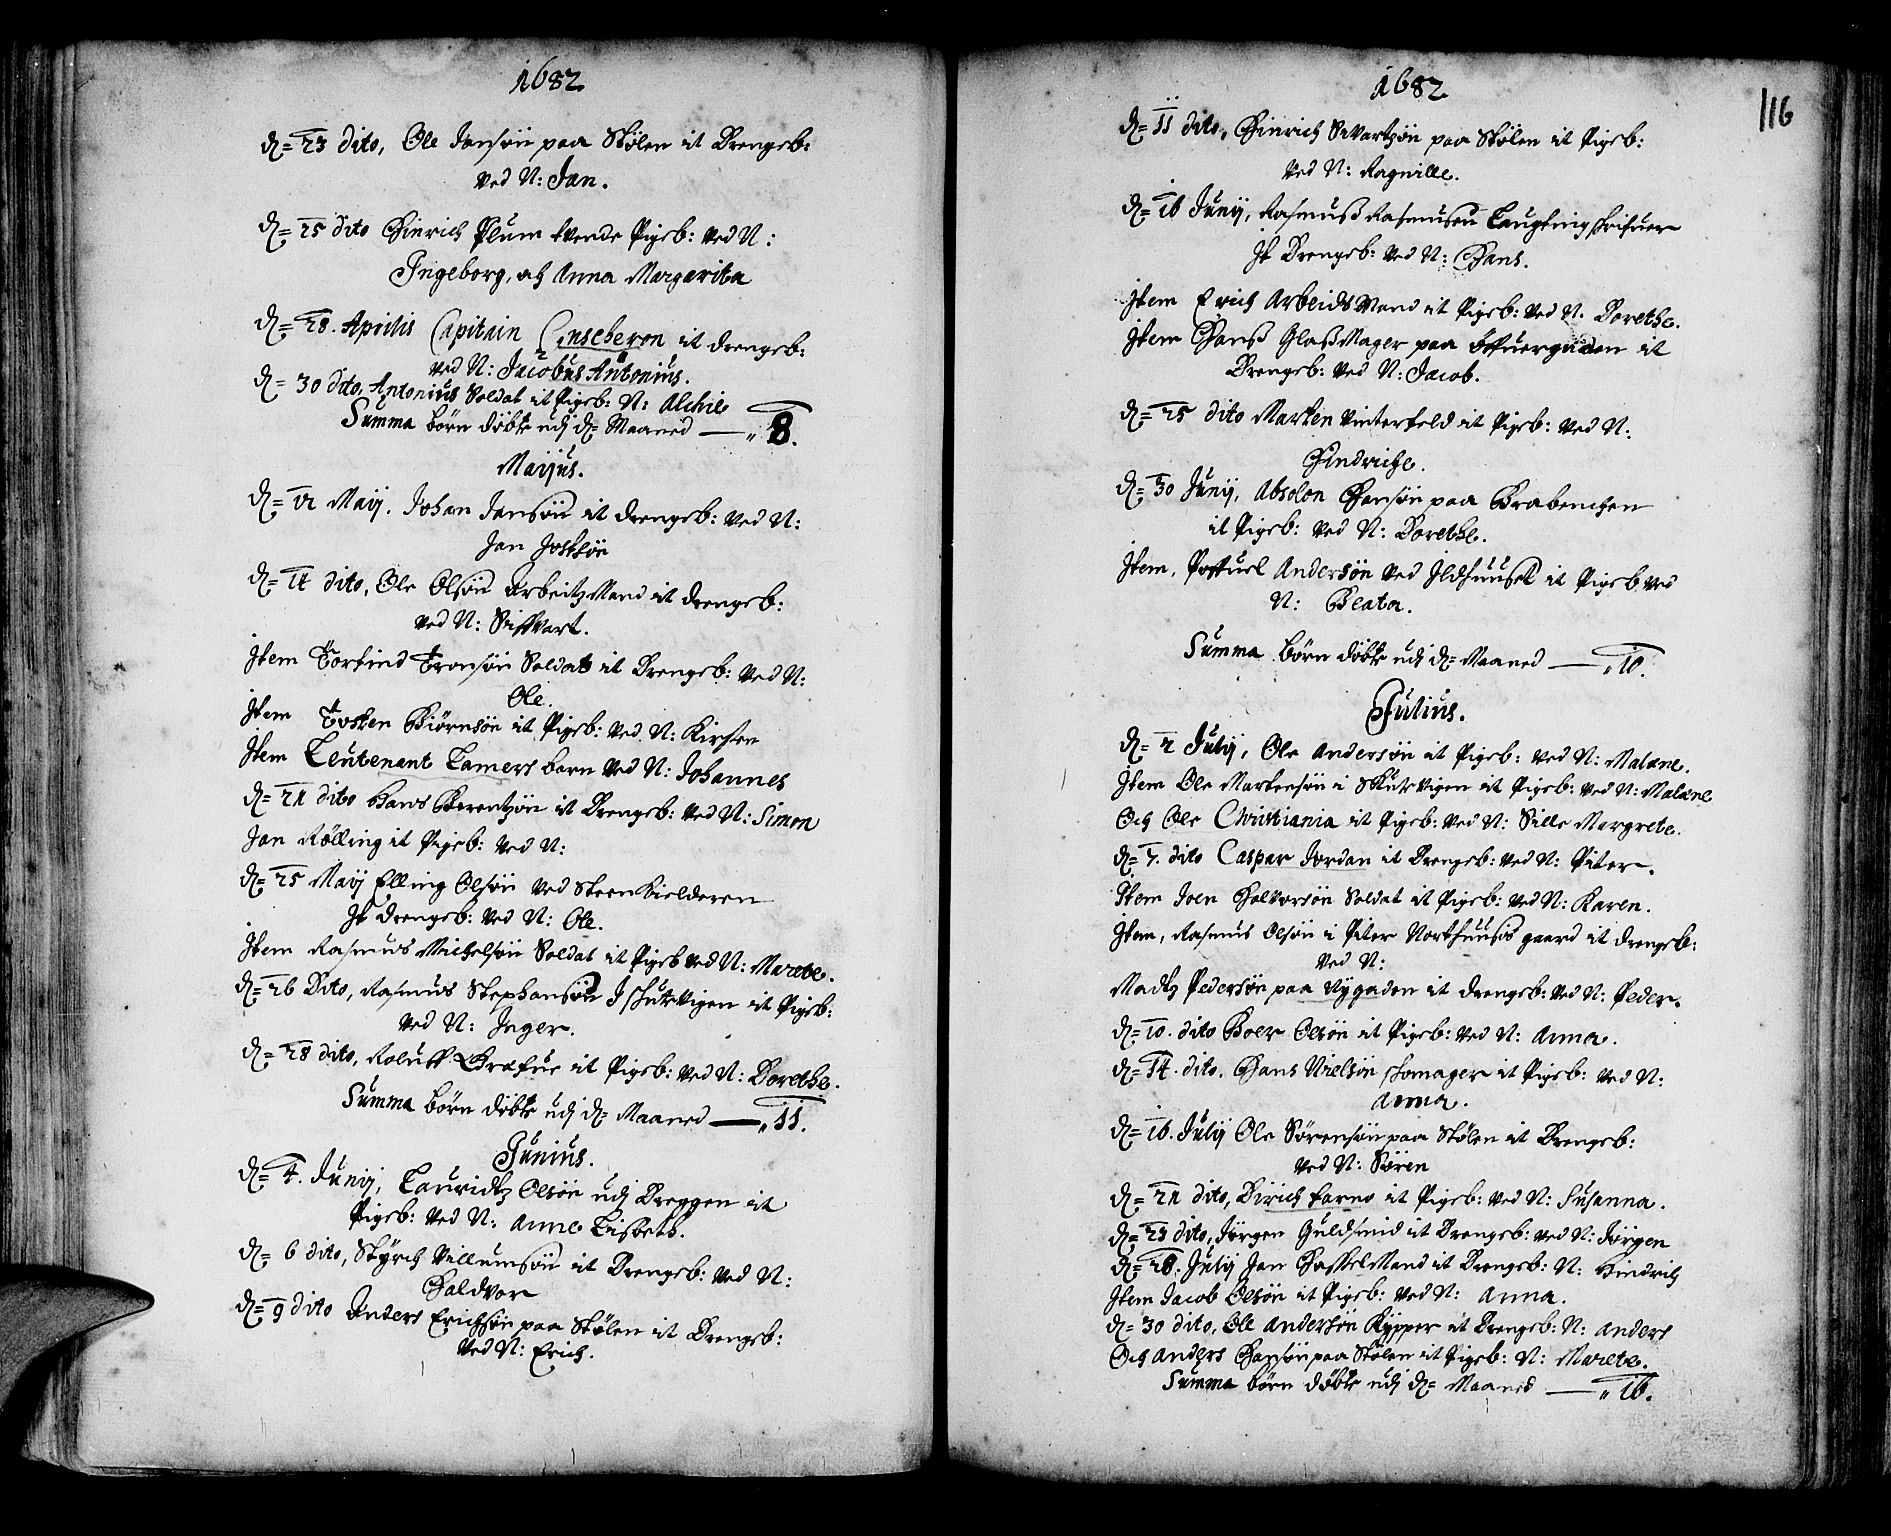 1682.
d= 23 dito, Ole Jansøn paa Stølen it Drengsb:
ved N: Jan.
d= 25 dito Hinrich Plum tvende Pigeb: ved N:
Ingeborg, och Anna Margarita
d= 28. Aprilis Capitain Coucheron it drengsb:
ved N: Jacobus Antonius.
d= 30 dito, Antonius Soldat it Pigeb: N: Alchie
Summa børn døbte udj d= Maaned — „ 8.
Maijus.
d= 12 Maij. Johan Jansøn it drengsb: ved N:
Jan Jostsøn
d= 14 dito, Ole Olsøn Arbeitzmand it drengsb:
ved N: Siffvart.
Item Torkind Tronsøn Soldat it Drengsb: ved N:
Ole.
Item Tosten Biørnsøn it Pigeb: ved N: Kirsten
Item Leutenant Lamers barn ved N: Johannes
d= 21 dito Hans Berentzøn it Drengsb: ved N: Simon
Jan Rølling it Pigeb: ved N:
d= 25 Maij Elling Olsøn ved Steen Kielderen
It drengsb: ved N: Ole.
Item Rasmus Michelsøn Soldat it Pigeb ved N: Marete.
d= 26 Dito, Rasmus Stephansøn I skutevigen it Pigeb:
ved N: Inger.
d= 28 dito, Roluff Grafue it Pigeb: ved N: Dorethe.
Summa børn døbte udj d= Maaned — „ 11.
Junius.
d= 4. Junij, Lauridtz Olsøn udj Dreggen it
Pigeb: ved N: Anne Lisbeth.
d= 6 dito, Styrch Villumsøn it Drengsb: ved N:
Haldvor
d= 9 dito Anders Erichsøn paa Stølen it Drengsb:
ved N: Erich.
1682
116
d= 11 dito, Hinrich Sivartzøn paa Stølen it Pigeb:
ved N: Ragnille.
d= 16 Junij, Rasmus Rasmusen Laugtingskrifuer
It Drengsb: ved N: Hans.
Item Erich Arbeidsmand it Pigeb: ved N. Dorethe.
Item Hans Glasmager paa Øffuergaden it
Drengsb: ved N: Jacob.
d= 25 dito Marten Vinterfeld it Pigeb: ved N:
Hindriche.
d= 30 Junij, Absolon Hansøn paa Brabenchen
it Pigeb: ved N: Dorethe.
Item, Poffuel Andersøn ved Ildhuuset it Pigeb ved
N: Beata.
Summa børn døbte udj d= Maaned — „ 10.
Julius.
d= 2 Julij, Ole Andersøn it Pigeb: ved N: Malene.
Item Ole Martensøn i Skutevigen it Pigeb: ved N: Malene
Och Ole Christiania it Pigeb: ved N: Sille Margrete.
d= 7. dito Caspar Jordan it Drengsb: ved N: Piter.
Item Joen Halvorsøn Soldat it Pigeb: ved N: Karen.
Item, Rasmus Olsøn i Piter Northuusis gaard it drengsb:
ved N:
Madtz Pedersøn paa Nygaden it drengsb: ved N: Peder.
d= 10. dito Boer Olsøn it Pigeb: ved N: Anna.
d= 14. dito. Hans Nielsøn skomager it Pigeb: ved N:
Anna.
d= 16. Julij Ole Sørensøn paa Stølen it Drengsb:
ved N: Søren
d= 21 dito, Dirich Farno it Pigeb: ved N: Susanna.
d= 23 dito, Jørgen Guldsmid it Drengsb: ved N: Jørgen
d= 28. Julij Jan Haffelmand it Drengsb: N: Hindrich
Item Jacob Olsøn it Pigeb: ved N: Anna.
d= 30 dito, Ole Andersøn Kypper it Drengsb: N: Anders
Och Anders Hansøn paa Stølen it Pigeb: N: Marete.
Summa børn døbte udj d= Maaned — „ 16.